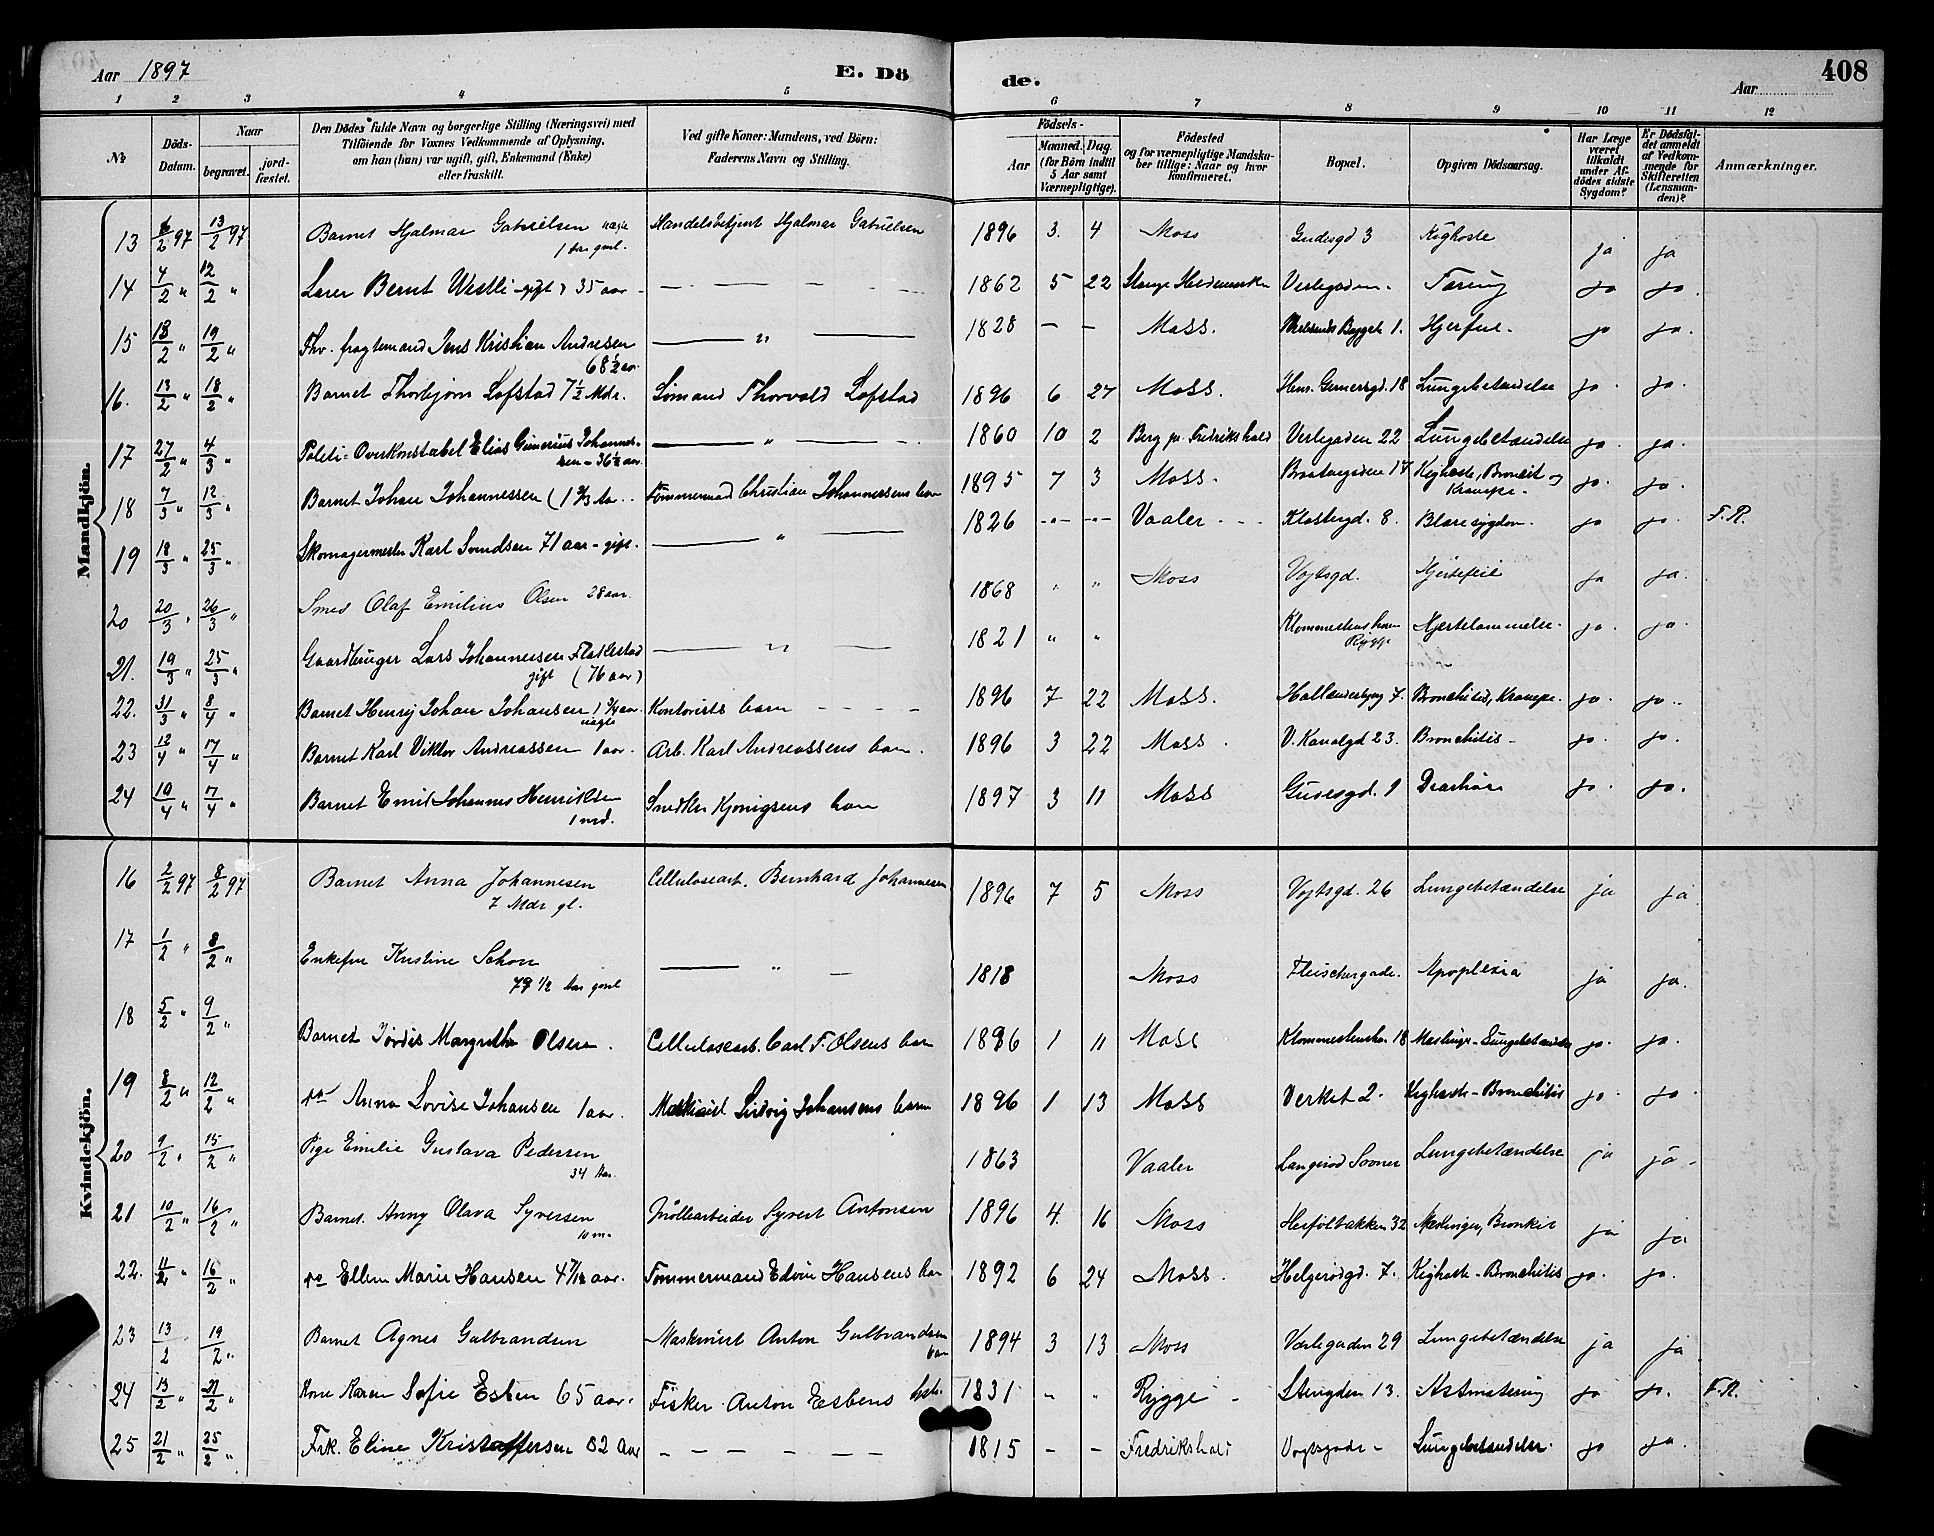 Aar 1897
E. Dö
de.
Aar
408
1 2 3 4 5 6 7 8 9 10 11 12
№
Döds-Datum.
Naar
begravet.
jord-fæstet.
Den Dödes fulde Navn og borgerlige Stilling (Næringsvei) med
Tilföiende for Voxnes Vedkommende af Oplysning,
om han (hun) var ugift, gift, Enkemand (Enke)
eller fraskilt.
Ved gifte Koner: Mandens, ved Börn:
Faderens Navn og Stilling.
Födsels-
Aar
Maaned. Dag.
(for Börn indtil
5 Aar samt
Værnepligtige).
Födested
og for værnepligtige Mandsku-
ber tillige: Naar og hvor
konfirmeret.
Bopæl.
Opgiven Dödsaarsag.
Har Læge
været
tilkaldt
under Af-
dödes sidste
Sygdom?
Er Dödsfal-
det anmeldt
af Vedkom-
mende for
Skifteretten
(Lensman-
den)?
Anmærkninger.
Mandkjön.
13 6/2 97 13/2 97 Barnet Hjalmar Gabrielsen uægte 1 Aar gml. Handelsbetjent Hjalmar Gabrielsen 1896 3. 4 Moss Gudesgd 3 Kighoste ja ja
14 4/2 " 12/2 " Bernt Westli gift 35 aar - 1862 5 22 Stange Hedemarken Verlegaden. Tæring ja ja.
15 13/2 " 19/2 " Fhv. fragtemand Jens Kristian Andresen 68½ aar — " — 1828 — — Moss. 1. Hjerfeil. ja ja.
16. 13/2 " 18/2 " Barnet Thorbjørn Løfstad 7½ Mdr. Sømand Thorvald Løfstad 1896 6 27 Moss. Hen. Gernersgd. 18 Lungebetændelse ja. ja.
17 27/2 " 4/3 " Politi-Overkonstabel Elias Gunerius Johannes-sen - 36½ aar — " — 1860 10 2 Berg pr. Fredrikshald Verlegaden 22 Lungebetændelse ja. ja.
18 7/3 " 12/3 " Barnet Johan Johannessen (1 ⅔ Aar Tømmermad Christian Johannessens barn 1895 7 3 Moss. 17 Kighoste, Bronkit og Krampe. ja. ja.
19 18/3 " 25/3 " Skomagermester Karl Svendsen 71 aar - gift. — " — 1826 -"- -"- Vaaler Klostergd. 8. Blæresygdom. ja ja. F.R.
20 20/3 " 26/3 " Smed Olaf Emilius Olsen 28 aar. 1868 " " Moss Vogtsgd. Hjertefeil ja ja.
21. 19/3 " 25/3 " Gaardbruger Lars Johannessen Flakkestad gift (76 aar) — " — 1821 " " Klommestenshaven Rygge Hjertelammelse. ja. ja.
22. 31/3 " 8/4 " Barnet Henry Johan Johansen uægte Kontorists barn - - - - 1896 7 22 Moss. 7. Bronchitis, Krampe. ja. ja.
23 12/4 " 17/4 " Barnet Karl Viktor Andreassen 1 aar. Arb. Karl Andreassens barn. 1896 3 22 Moss. V. Kanalgd 23. Bronchitis - ja. ja.
24 10/4 " 17/4 " Barnet Emil Johannes Henriksen 1 md. Snedker barn 1897 3 11 Moss Gudesgd. 9 ja. ja.
Kvindekjön.
16 2/2 97 8/2 97 Barnet Anna Johannesen 7 Mdr gl. Cellulosearb. Bernhard Johannesen 1896 7 5 Moss Vogtsgd. 26 Lungebetændelse ja ja
17 1/2 " 8/2 " Enkefru Kristine Schou 79 1/2 Aar gml — " — 1818 Moss Fleischergade. Apoplexia ja ja.
18 5/2 " 9/2 " Barnet Jordis Margrethe Olsen. Cellulosearb. Carl F. Olsens barn 1896 1 11 Moss 18 Meslinge - Lungebetændelse ja. ja.
19 8/2 " 12/2 " do Anna Lovise Johansen 1 aar. Maskinist Ludvig Johansens barn 1896 1 13 Moss Verket 2. Kighoste - Bronchitis ja. ja.
20 9/2 " 15/2 " Pige Emilie Gustava Pedersen 34 Aar. 1863 Vaaler Langerød Sooner Lungebetændelse ja ja.
21 10/2 " 16/2 " Barnet. Anny Olava Syversen 10 m. Møllearbeider Syvert Antonsen 1896 4. 16 Moss Herfølbakken 32 Meslinger, Bronkit ja ja
22. 11/2 " 16/2 " do Ellen Marie Hansen 4 7/12 aar. Tømmermand Edvin Hansens barn 1892 6 24 Moss. Helgerødgd. 7. Kighoste - Bronchitis ja. ja.
23 13/2 19/2 " Barnet Agnes Gulbrandsen Maskinist Anton Gulbrandsen barn 1894 3 13 Moss Værlegaden 29 Lungebetændelse ja ja
24 13/2 " 21/2 " Kone Karen Sofie Esben 65 aar. Fisker Anton Esbens hstr. 1831 - " Rygge - Stengden 13. ja ja. F.R.
25 21/2 " 25/2 " Frk. Eline Kristoffersen 82 Aar — — — — — 1815 - - Fredrikshald Vogtsgade - Lungebetændelse. ja ja.